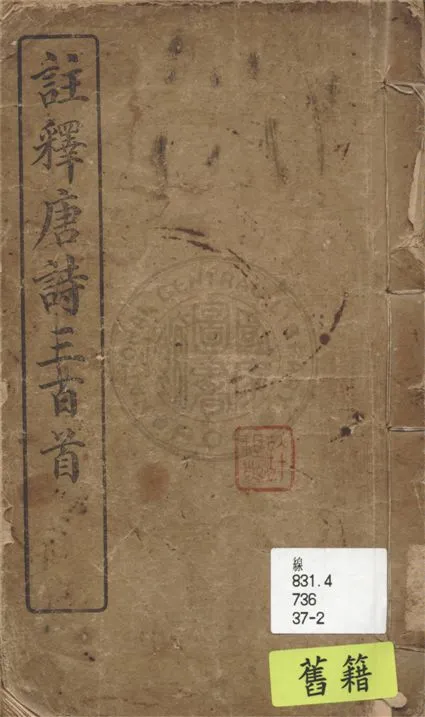 註釋唐詩三百首
線
831.4
736
37-2
舊籍